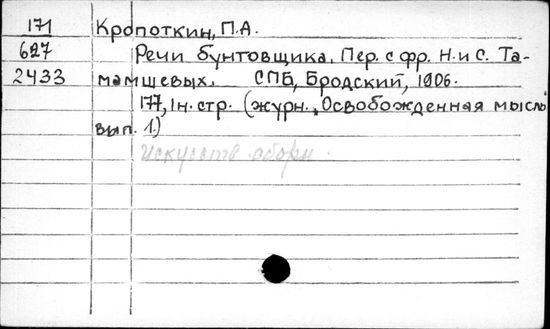 171 Кропоткин, П.А.
627 Речи бунтовщика. Пер. с фр. Н. и С. Та-
2433 мамшевых. СПБ, Бродский, 1906.
177, 1н. стр. (журн. „Освобожденная мысль
вып. 1.)
искусств. оборм.